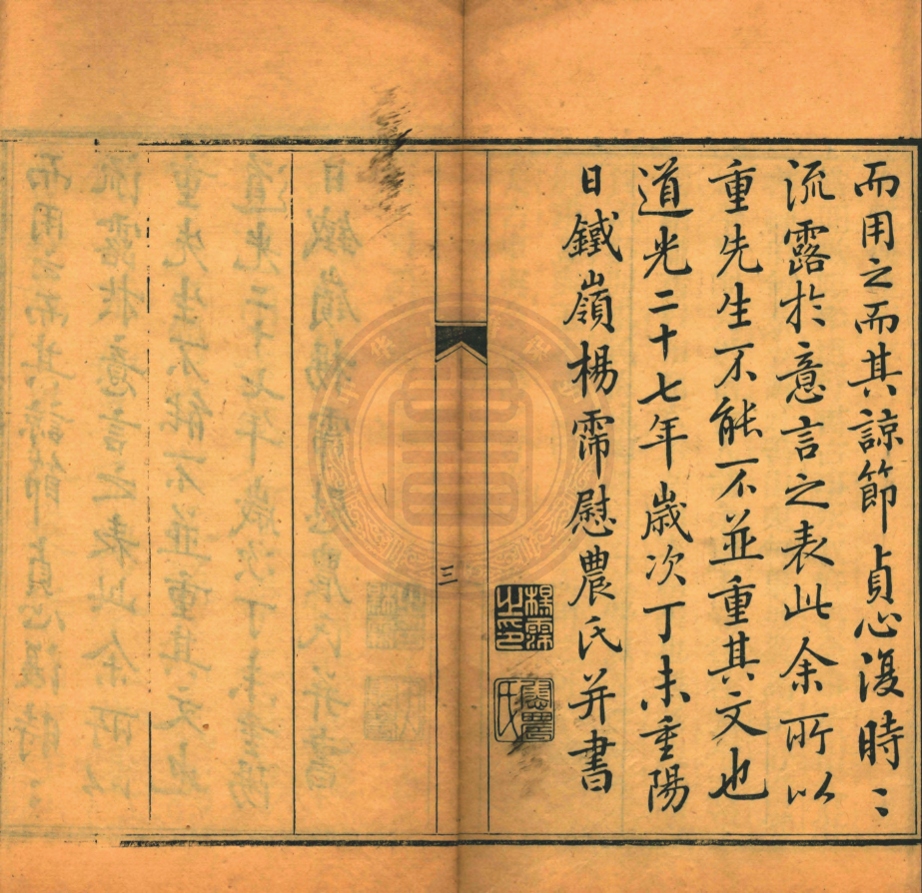 而用之而其諒節貞心復時〻
流露於意言之表此余所以
重先生不能不並重其文也
道光二十七年歲次丁未重陽
日鐵嶺楊霈慰農氏并書
楊霈之印
三